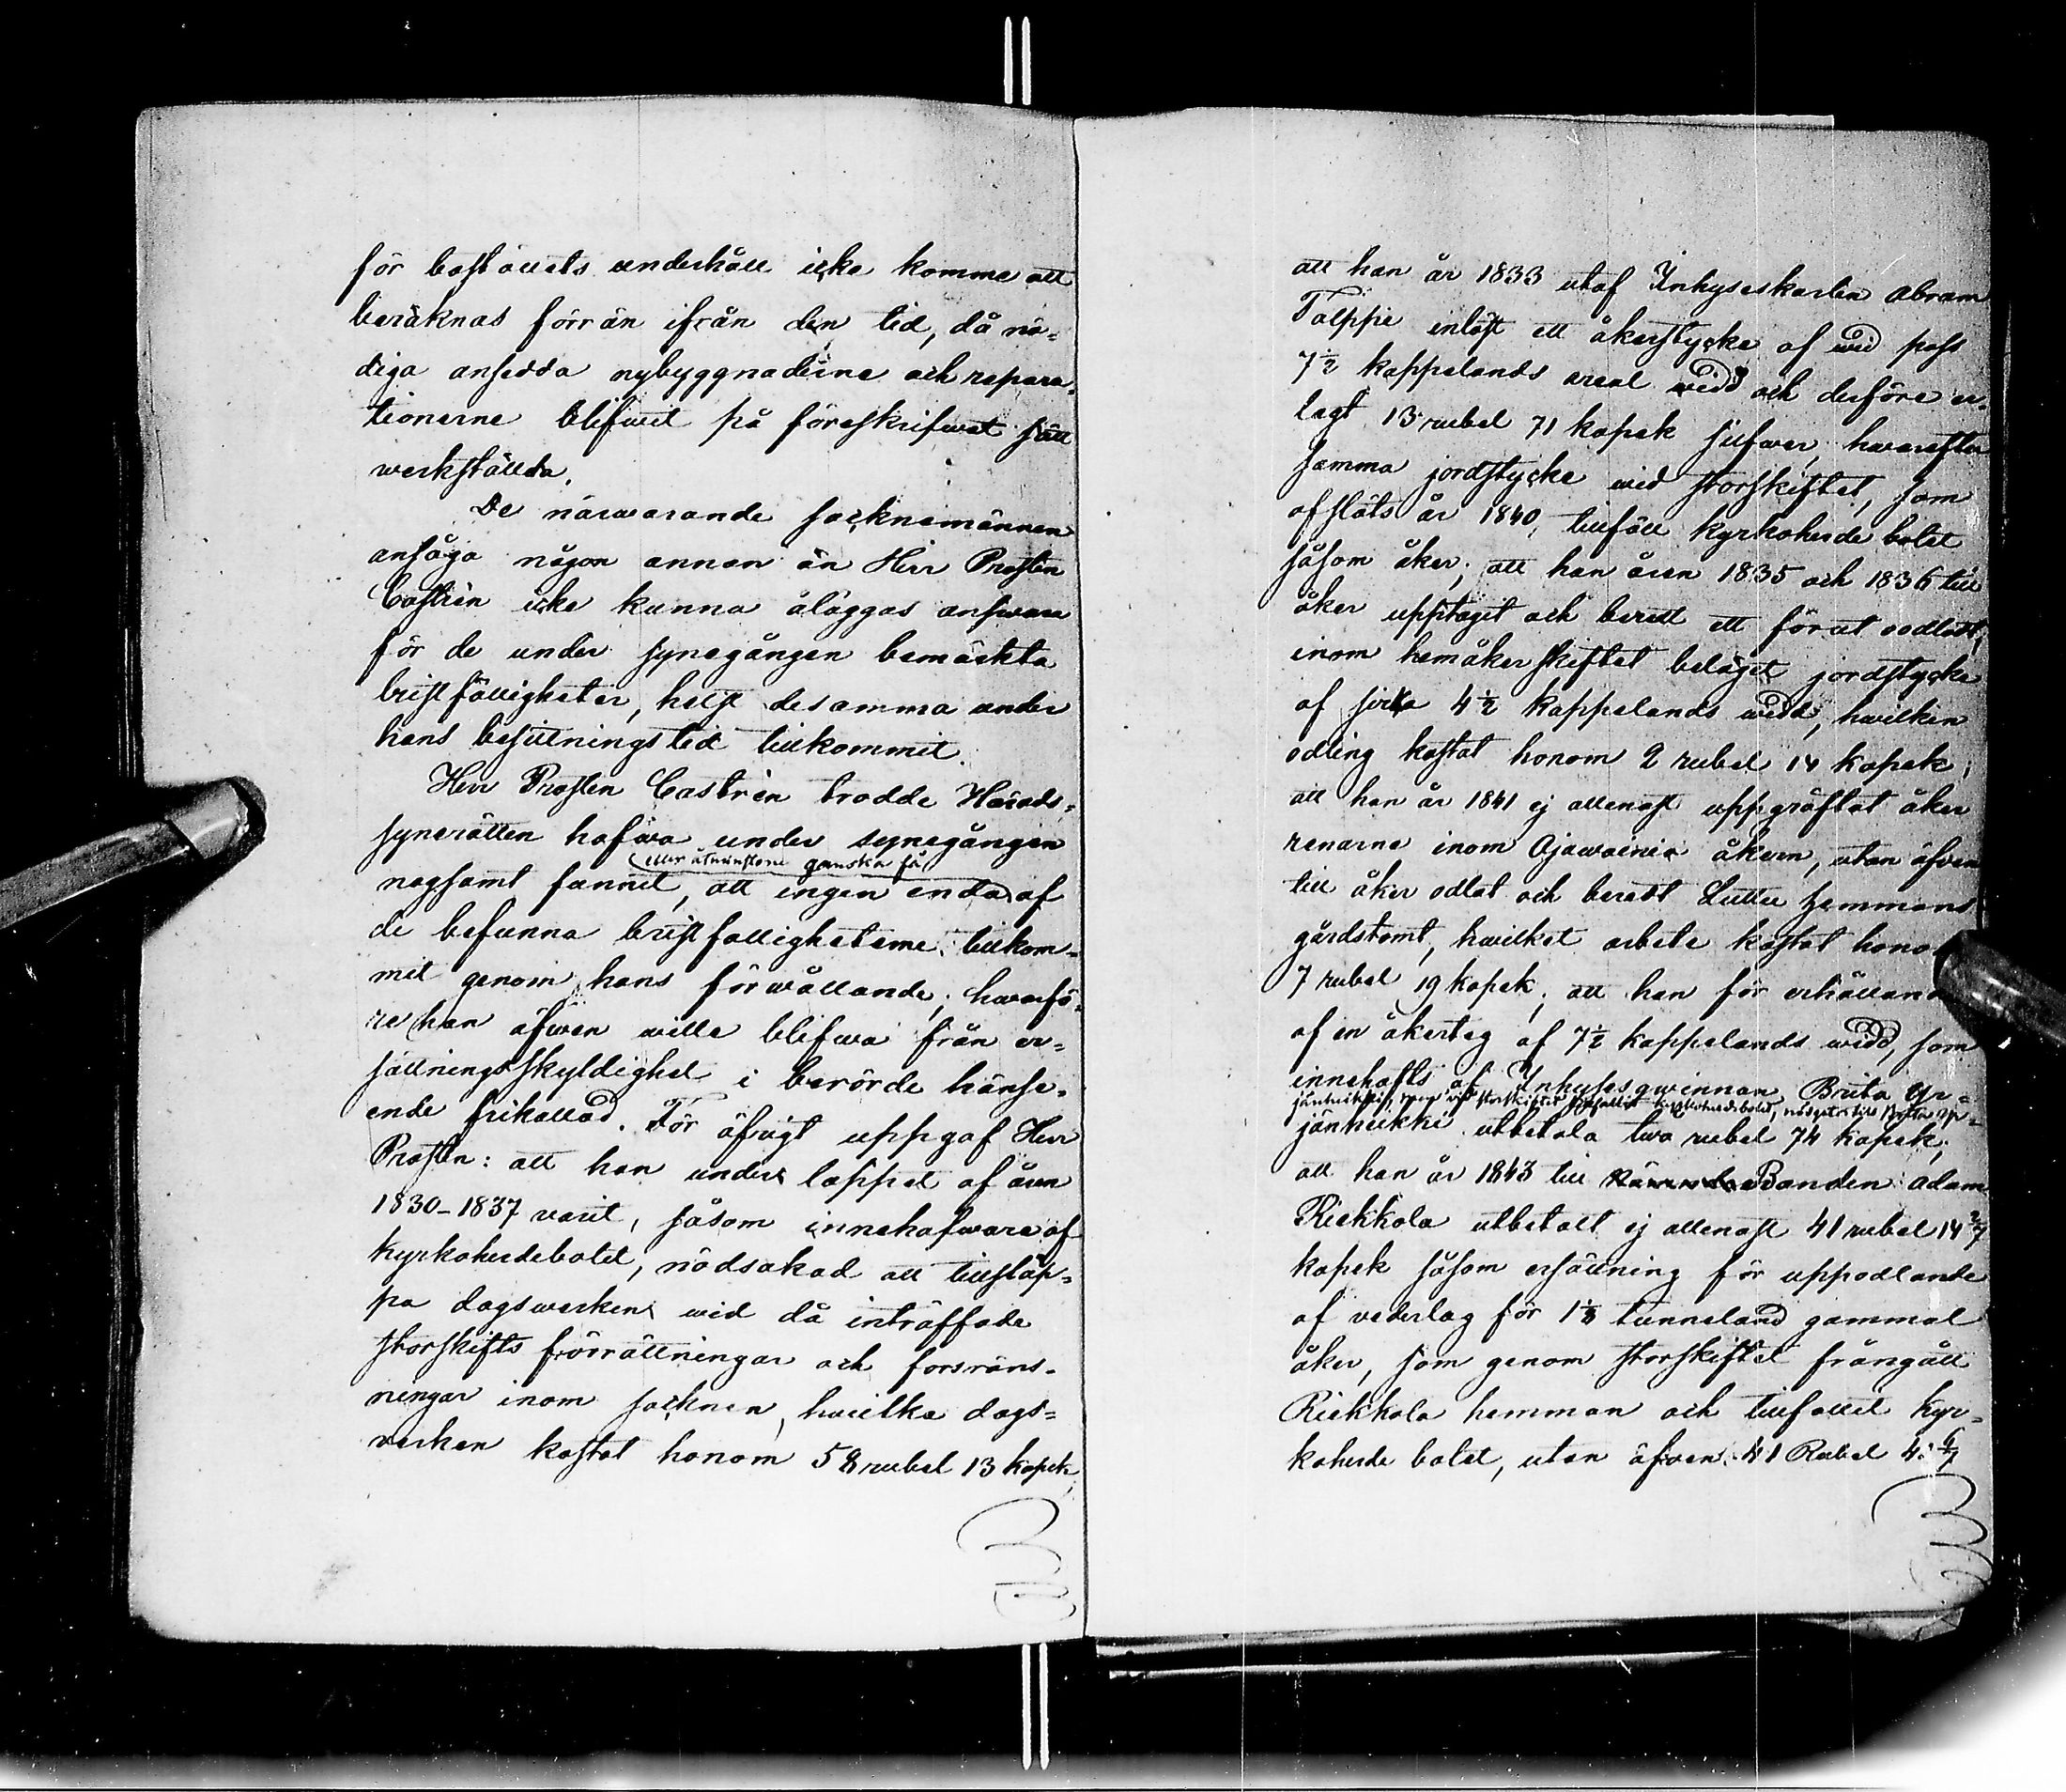 för boställets underhåll icke komma att
beräknas förr än ifrån den tid, då nö-
diga ansedda nybyggnaderne och repara-
tionerne blifwit på föreskrifwet sätt
werkställda.
De närwarande socknemännen
ansågo någon annan än Herr Prosten
Castrén icke kunna åläggas answara
för de under synegången bemärkta
bristfälligheter, helst desamma under
hans besittningstid tillkommit.
Herr Prosten Castrén trodde Härads-
synerätten hafwa under synegången
(eller åtminstone ganska få)
nogsamt funnit, att ingen enda af
de befunna bristfälligheterne tillkom-
mit genom hans förwållande; hwarfö-
re han äfwen wille blifwa från er-
sättningsskyldighet i berörde hänse-
ende frikallad. För öfrigt uppgaf Herr
Prosten: att han under loppet af åren
1830-1837 varit, såsom innehafware af
Kyrkoherdebolet, nödsakad att tillsläp-
pa dagswerken wid då inträffade
storskifts förrättningar och forsräns-
ningar inom socknen, hwilka dags-
verken kostat honom 58 rubel 13 kopek,
att han år 1833 utaf Inhyseskarlen Abram
Talppie inlöst ett åkerstycke af wid pass
7½ kappelands areal widd och derföre er-
lagt 13 rubel 71 kopek silfwer, hwarefter
samma jordstycke wid storskiftet, som
afslöts år 1840, tillföll kyrkoherde bolet
såsom åker; att han åren 1835 och 1836 till
åker upptagit och beredt ett förut oodladt,
inom hemåker skiftet beläget jordstycke
af cirka 4½ kappelands widd, hwilken
odling kostat honom 2 rubel 14 kopek;
att han år 1841 ej allenast uppgräftat åker
renarne inom Ojawainia åkern, utan äfven
till åker odlat och beredt Luttu hemmans
gårdstomt, hwilket arbete kostat hono
7 rubel 19 kopek; att han för erhålland
af en åkerteg af 7½ kappelands widd, som
innehafts af Inhysesqwinnan Brita Yr-
jänheikki, men wid storskiftet tillfallit kyrkoherdebolet, nödgats till Brita Yr-
jänheikki utbetala twå rubel 74 kopek;
att han år 1843 till Bonden Adam
Riekkola utbetalt ej allenast 41 rubel 14 2/7
kopek såsom ersättning för uppodlande
af vederlag för 1⅓ tunneland gammal
åker, som genom storskiftet frångått
Riekkola hemman och tillfallit Kyr-
koherde bolet, utan äfven 41 Rubel 4 6/7